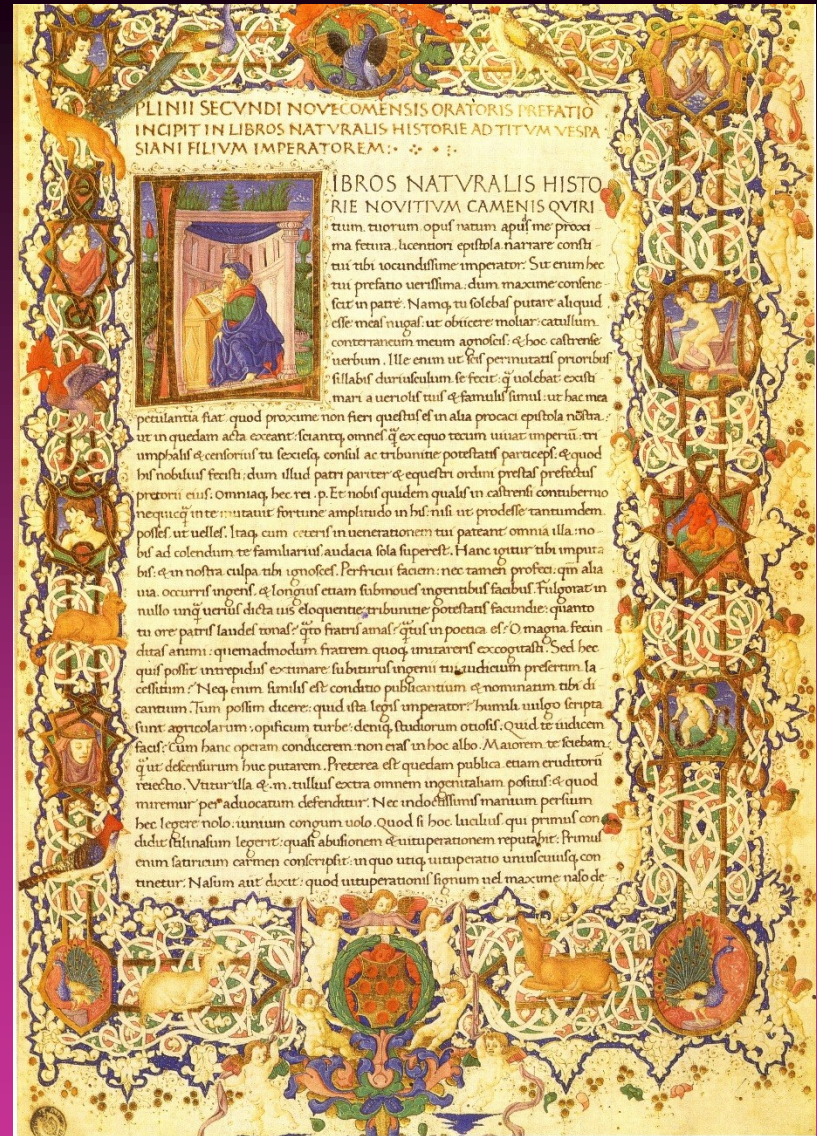 PLINII SECVNDI NOVECOMENSIS ORATORIS PREFATIO
INCIPIT IN LIBROS NATVRALIS HISTORIE AD TITVM VESPA
SIANI FILIVM IMPERATOREM:
L
IBROS NATVRALIS HISTO
RIE NOVITIVM CAMENIS QVIRI
tium tuorum opus natum apus me proxi
ma fetura. licentiori epistola narrare consti
tui tibi iocundissime imperator. Sit enim hec
tui prefatio uerissima: dum maxime consene
scit in patre. Namq, tu solebas putare aliquid
esse meas nugas: ut obiicere moliar catullum
conterraneum meum agnoscis: & hoc castrense
uerbum. Ille enim ut scis permutatis prioribus
sillabis duriusculum se fecit: q̃ uolebat existi
mari a ueriolis tuis & famulis simul: ut hac mea
petulantia fiat quod proxime non fieri questus es in alia procaci epistola nostra:
ut in quedam acta exeant: sciantq, omnes q̃ ex equo tecum uiuat imperiũ: tri
umphalis & censorius tu sexiesq, consul ac tribunitie potestatis particeps: & quod
his nobilius fecisti: dum illud patri pariter & equestri ordini prestas prefectus
pretorii eius. Omniaq, hec rei .p. Et nobis quidem qualis in castrensi contubernio
nequicq̃ in te mutauit fortune amplitudo in his: nisi ut prodesse tantumdem
posses. ut uelles. Itaq, cum ceteris in uenerationem tui pateant omnia illa: no
bis ad colendum te familiarius. audacia sola superest. Hanc igitur tibi imputa
bis: & in nostra culpa tibi ignosces. Perfricui faciem: nec tamen profeci: qm̃ alia
uia. occurris ingens. & longius etiam submoues ingentibus facibus. Fulgorat in
nullo unq̃ uerius dicta uis eloquentie: tribunitie potestatis facundie: quanto
tu ore patris laudes tonas? q̃to fratris amas? q̃tus in poetica es? O magna fecun
ditas animi: quemadmodum fratrem quoq, imitareris excogitasti. Sed hec
quis possit intrepidus extimare: subiturus ingenii tui iudicium presertim la
cessitum? Neq, enim similis est conditio publicantium & nominatum tibi di
cantium. Tum possim dicere: quid ista legis imperator? humili uulgo scripta
sunt agricolarum: opificum turbe: deniq, studiorum otiosis. Quid te iudicem
facis? Cum hanc operam condicerem: non eras in hoc albo. Maiorem te sciebam:
q̃ ut descensurum huc putarem. Preterea est quedam publica etiam eruditorũ
reiectio. Vtitur illa & .m. tullius extra omnem ingenitaliam positus: & quod
miremur per aduocatum defenditur. Nec indoctissimis manium persium
hec legere nolo: iunium congum uolo. Quod si hoc lucilius qui primus con
didit stilinasum legerit: quasi abusionem & uituperationem reputabit: Primus
enim satiricum carmen conscripsit: in quo utiq, uituperatio uniuscuiusq, con
tinetur. Nasum aut̃ dixit: quod uituperationis signum uel maxime naso de